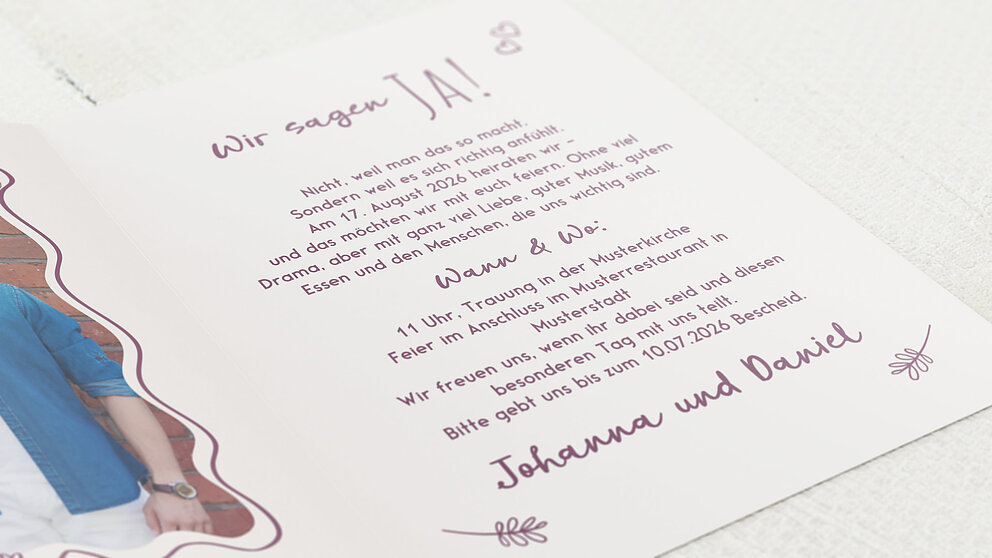 Wir sagen JA!
Nicht, weil man das so macht.
Sondern weil es sich richtig anfühlt.
Am 17. August 2026 heiraten wir –
und das möchten wir mit euch feiern. Ohne viel
Drama, aber mit ganz viel Liebe, guter Musik, gutem
Essen und den Menschen, die uns wichtig sind.
Wann & Wo:
11 Uhr, Trauung in der Musterkirche
Feier im Anschluss im Musterrestaurant in
Musterstadt
Wir freuen uns, wenn ihr dabei seid und diesen
besonderen Tag mit uns teilt.
Bitte gebt uns bis zum 10.07.2026 Bescheid.
Johanna und Daniel